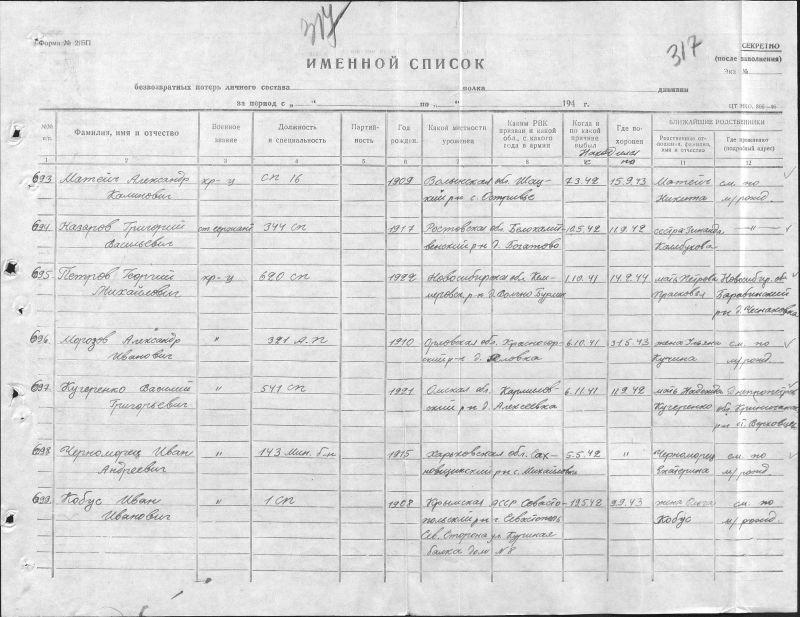 317
Форма № 2/БП
317
СЕКРЕТНО
(после заполнения)
Экз №
ИМЕННОЙ СПИСОК
безвозвратных потерь личного состава полка дивизии
за период с „ “ по „ “ 194 г.
№№ п/п. Фамилия, имя и отчество Военное звание Должность и специальность Партийность Год рожден. Какой местности уроженец Каким РВК призван и какой обл., с какого года в армии Когда и по какой причине выбыл Где похоронен БЛИЖАЙШИЕ РОДСТВЕННИКИ
Находился
с по
Где проживают (подробный адрес)
1 2 3 4 5 6 7 8 9 10 11 12
693 Матейч Александр кр-ц СП 16 1909 Волынская обл Шац- 7.3.42 15.9.43 Матейч см. по
Калинович кий рн с. Островье Никита м/рожд.
694 Назаров Григорий ст сержант 344 сп 1917 Ростовская обл Белокалит- 10.5.42 11.9.42 сестра Зинаида —"—
Васильевич венский рн д. Богатово
695 Петров Георгий кр-ц 620 сп 1922 Новосибирская обл. Кем- 1.10.41 14.2.44 мать Петрова Новосибир. об.
Михайлович Прасковья Барабинский
рн д.
696. Морозов Александр " 391 А.П 1910 Орловская обл. Красногор- 6.10.41 31.5.43 жена Ульяна см. по
Иванович ский р-н д. м/рожд.
697. Кучеренко Василий " 541 сп 1921 Омская обл 6.11.41 11.9.42 мать Надежда Днепропетров
Григорьевич ский рн д. Алексеевка Кучеренко обл.
698 Черноморец Иван " 143 Мин. б-н 1915 Харьковская обл. Сах- 5.5.42 " Черноморец см. по
Андреевич новщинский рн с. Михайловка Екатерина м/рожд.
699. Кобус Иван " 1 сп 1908 Крымская АССР Севасто- 19.5.42 9.9.43 жена Ольга см. по
Иванович польский рн г. Севастополь Кобус м/рожд.
Сев. Сторона ул
балка дом № 8